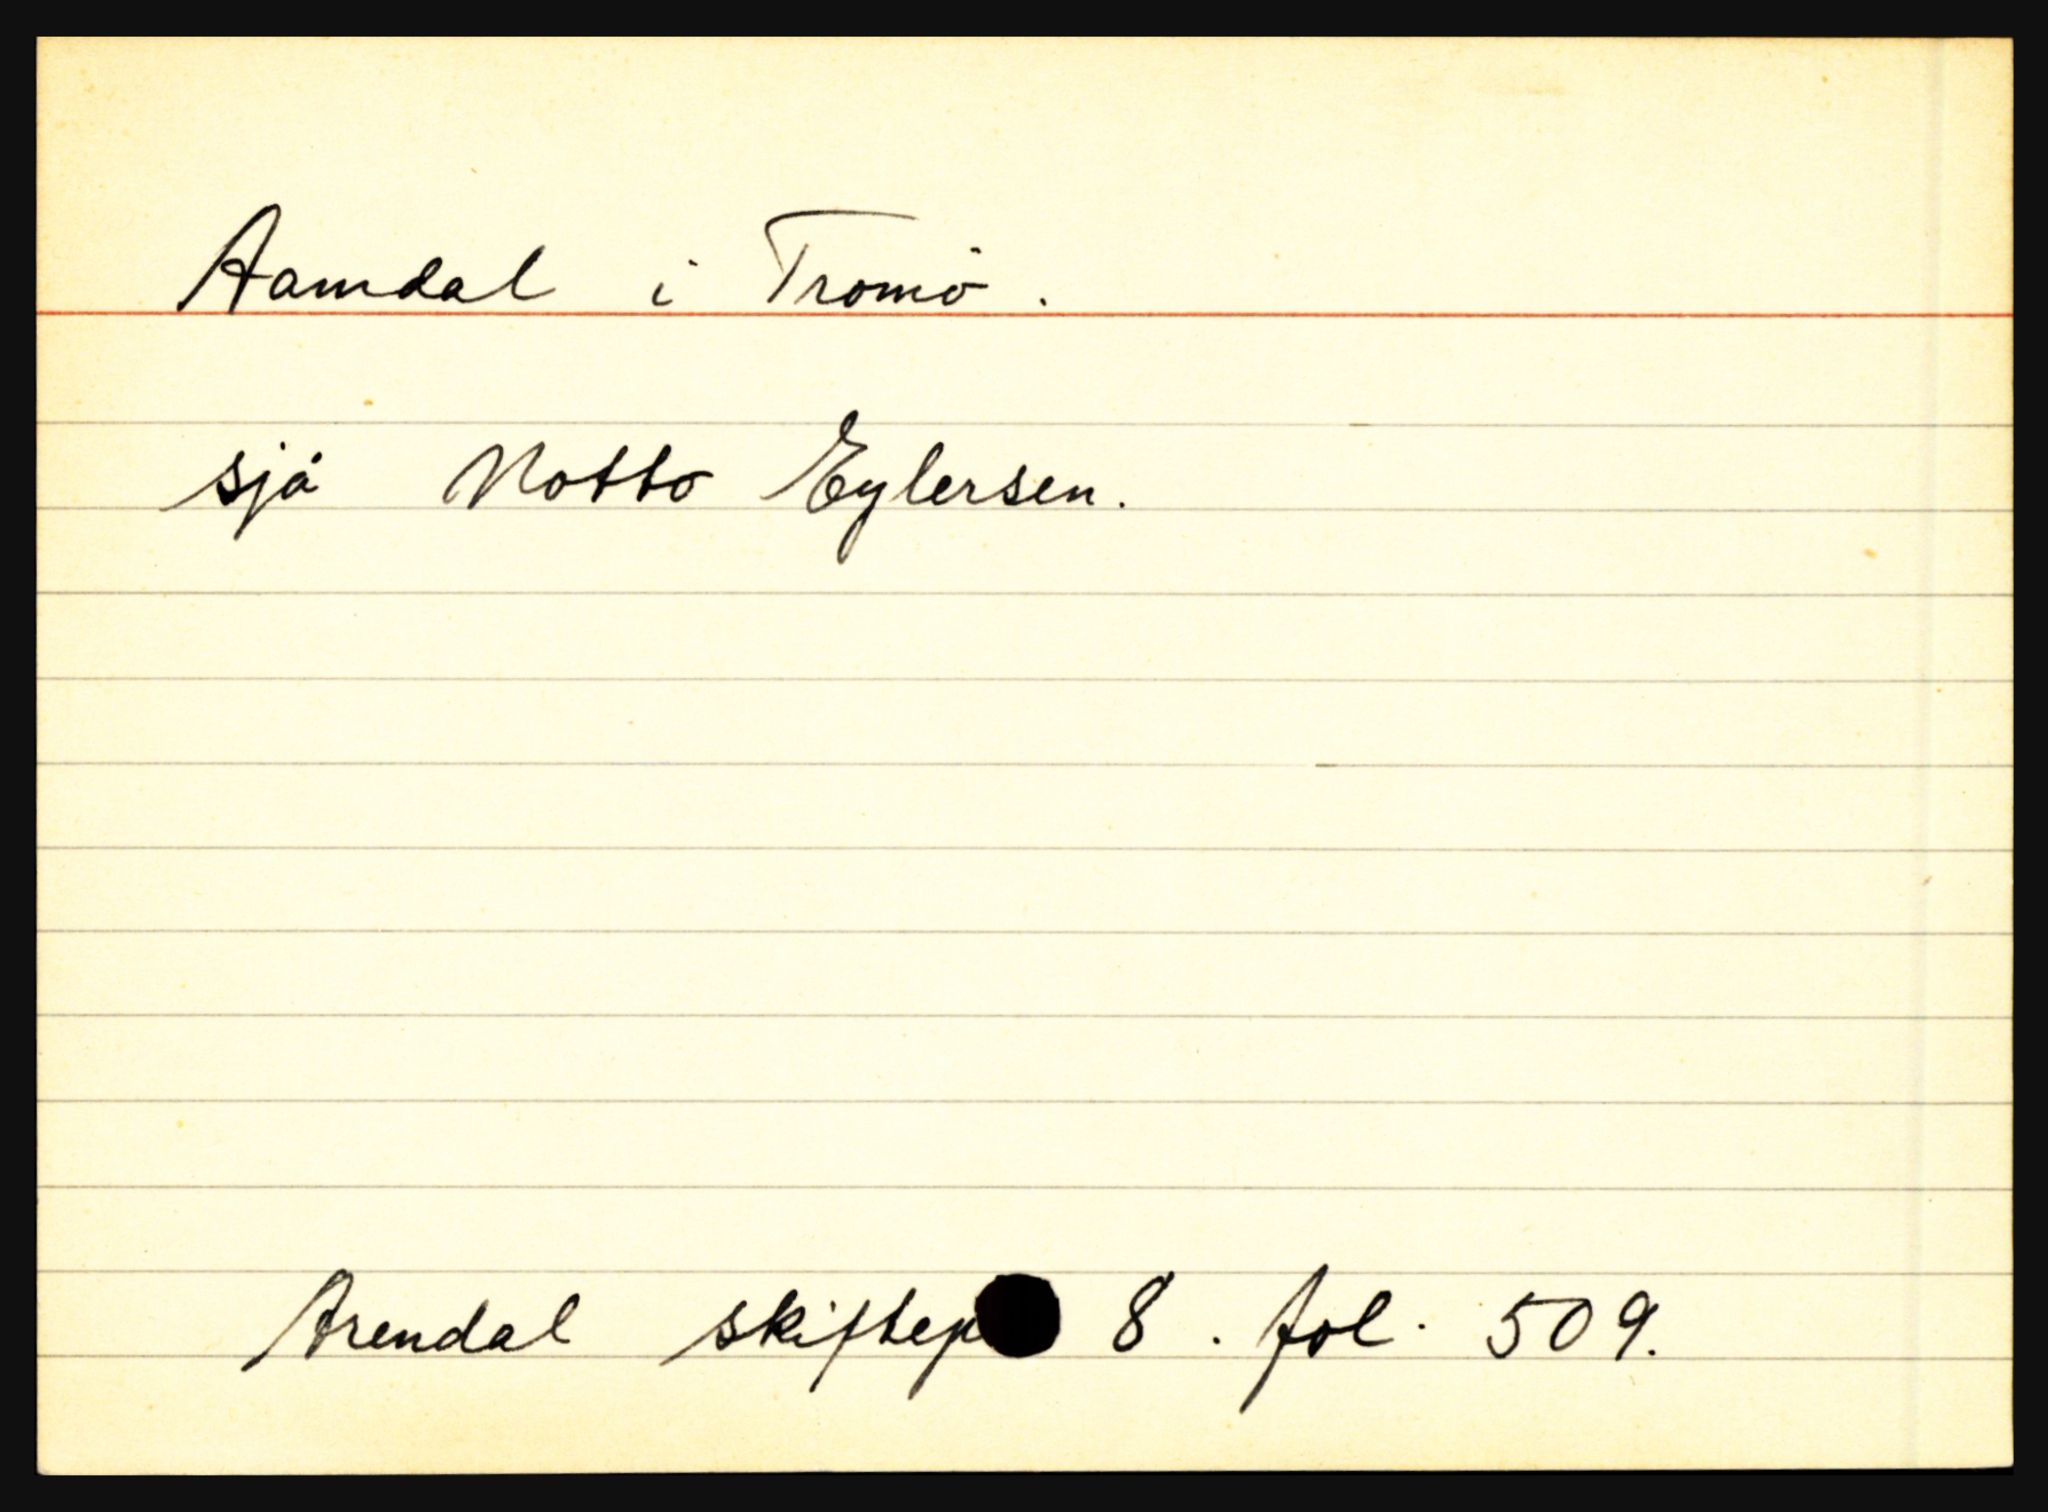 Aamdal i Tromö.
sjå Notto Eylersen.
Arendal skiftep 8. fol. 509.